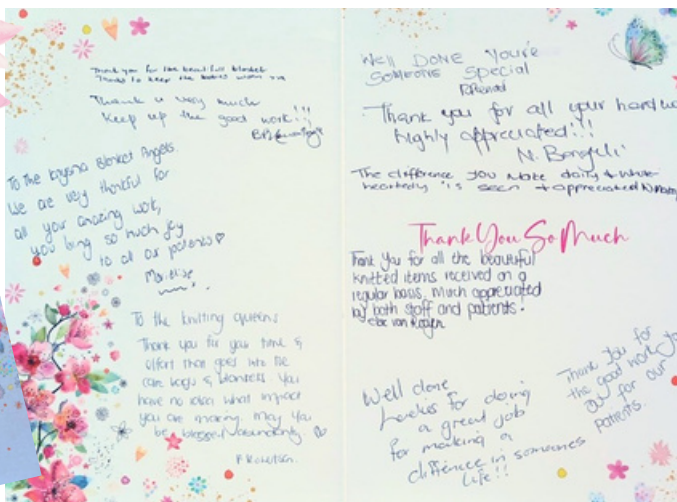 Thank you for the beautiful blanket
Thanks to keep the babies warm
Thank u very much
Keep up the good work!!!
To the Knysna Blanket Angels.
We are very thankful for
all your amazing work,
you bring so much joy
to all our patients
To the knitting queens
Thank you for your time &
effort that goes into the
care bags & blankets. You
have no idea what impact
you are making. May you
be blessed abundantly.
F Robertson.
Well DONE You're
Someone Special
Thank you for all your hard wo
highly appreciated!!!
The difference you make daily & whole
heartedly is seen + appreciated
Thank You So Much
Thank You for all the beautiful
knitted items received on a
regular basis. Much appreciated
by both staff and patients.
Well done
Ladies for doing
a great job
for making a
difference in someones
Life!!
Thank you for
the good work you
do for our
patients